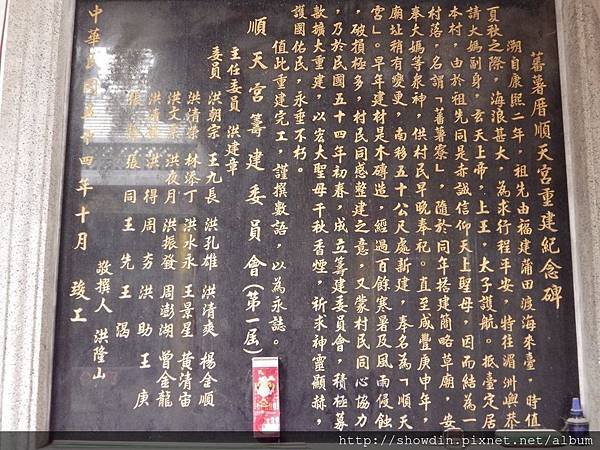 蕃薯厝順天宮重建紀念碑
溯自康熙二年，祖先由福建莆田渡海來臺，時值
夏秋之際，海浪甚大，為求行程平安，特往湄州嶼恭
請大媽副身，玄天上帝，上王，太子護航。抵臺定居
本村，由於祖先同是赤誠信仰天上聖母，因而結為一
村落，名謂「蕃薯寮」，隨於同年搭建簡略草廟，安
奉大媽等泉神，供村民早晚奉祀。直至咸豐庚申年，
廟址稍有變更，南移五十公尺處新建，奉名為「順天
宮」。早年建材是木磚造，經過百餘寒暑及風雨侵蝕
，破損極多，村民同感整建之意，又蒙村民同心協力
乃於民國五十四年初春，成立籌建委員會，積極募
款擴大重建，以宏大聖母千秋香煙，祈求神靈顯赫，
護國佑民，永垂不朽。
值此重建完工，謹撰數語，以為永誌。
順天宮籌建委員會(第一屆)
主任委員 洪建章
委員 洪朝宗 王九長 洪孔雄 洪清爽 楊金順
洪清榮 林添丁 洪水永 王景星 黃清宙
洪文 洪夜月 洪振發 周澎湖 曾金龍
洪清 洪得 周夯 洪助 王庚
張 張同 王先 王
敬撰人 洪隆山
中華民國五十四年十月 竣工
http://showdin.pixnet.net/album